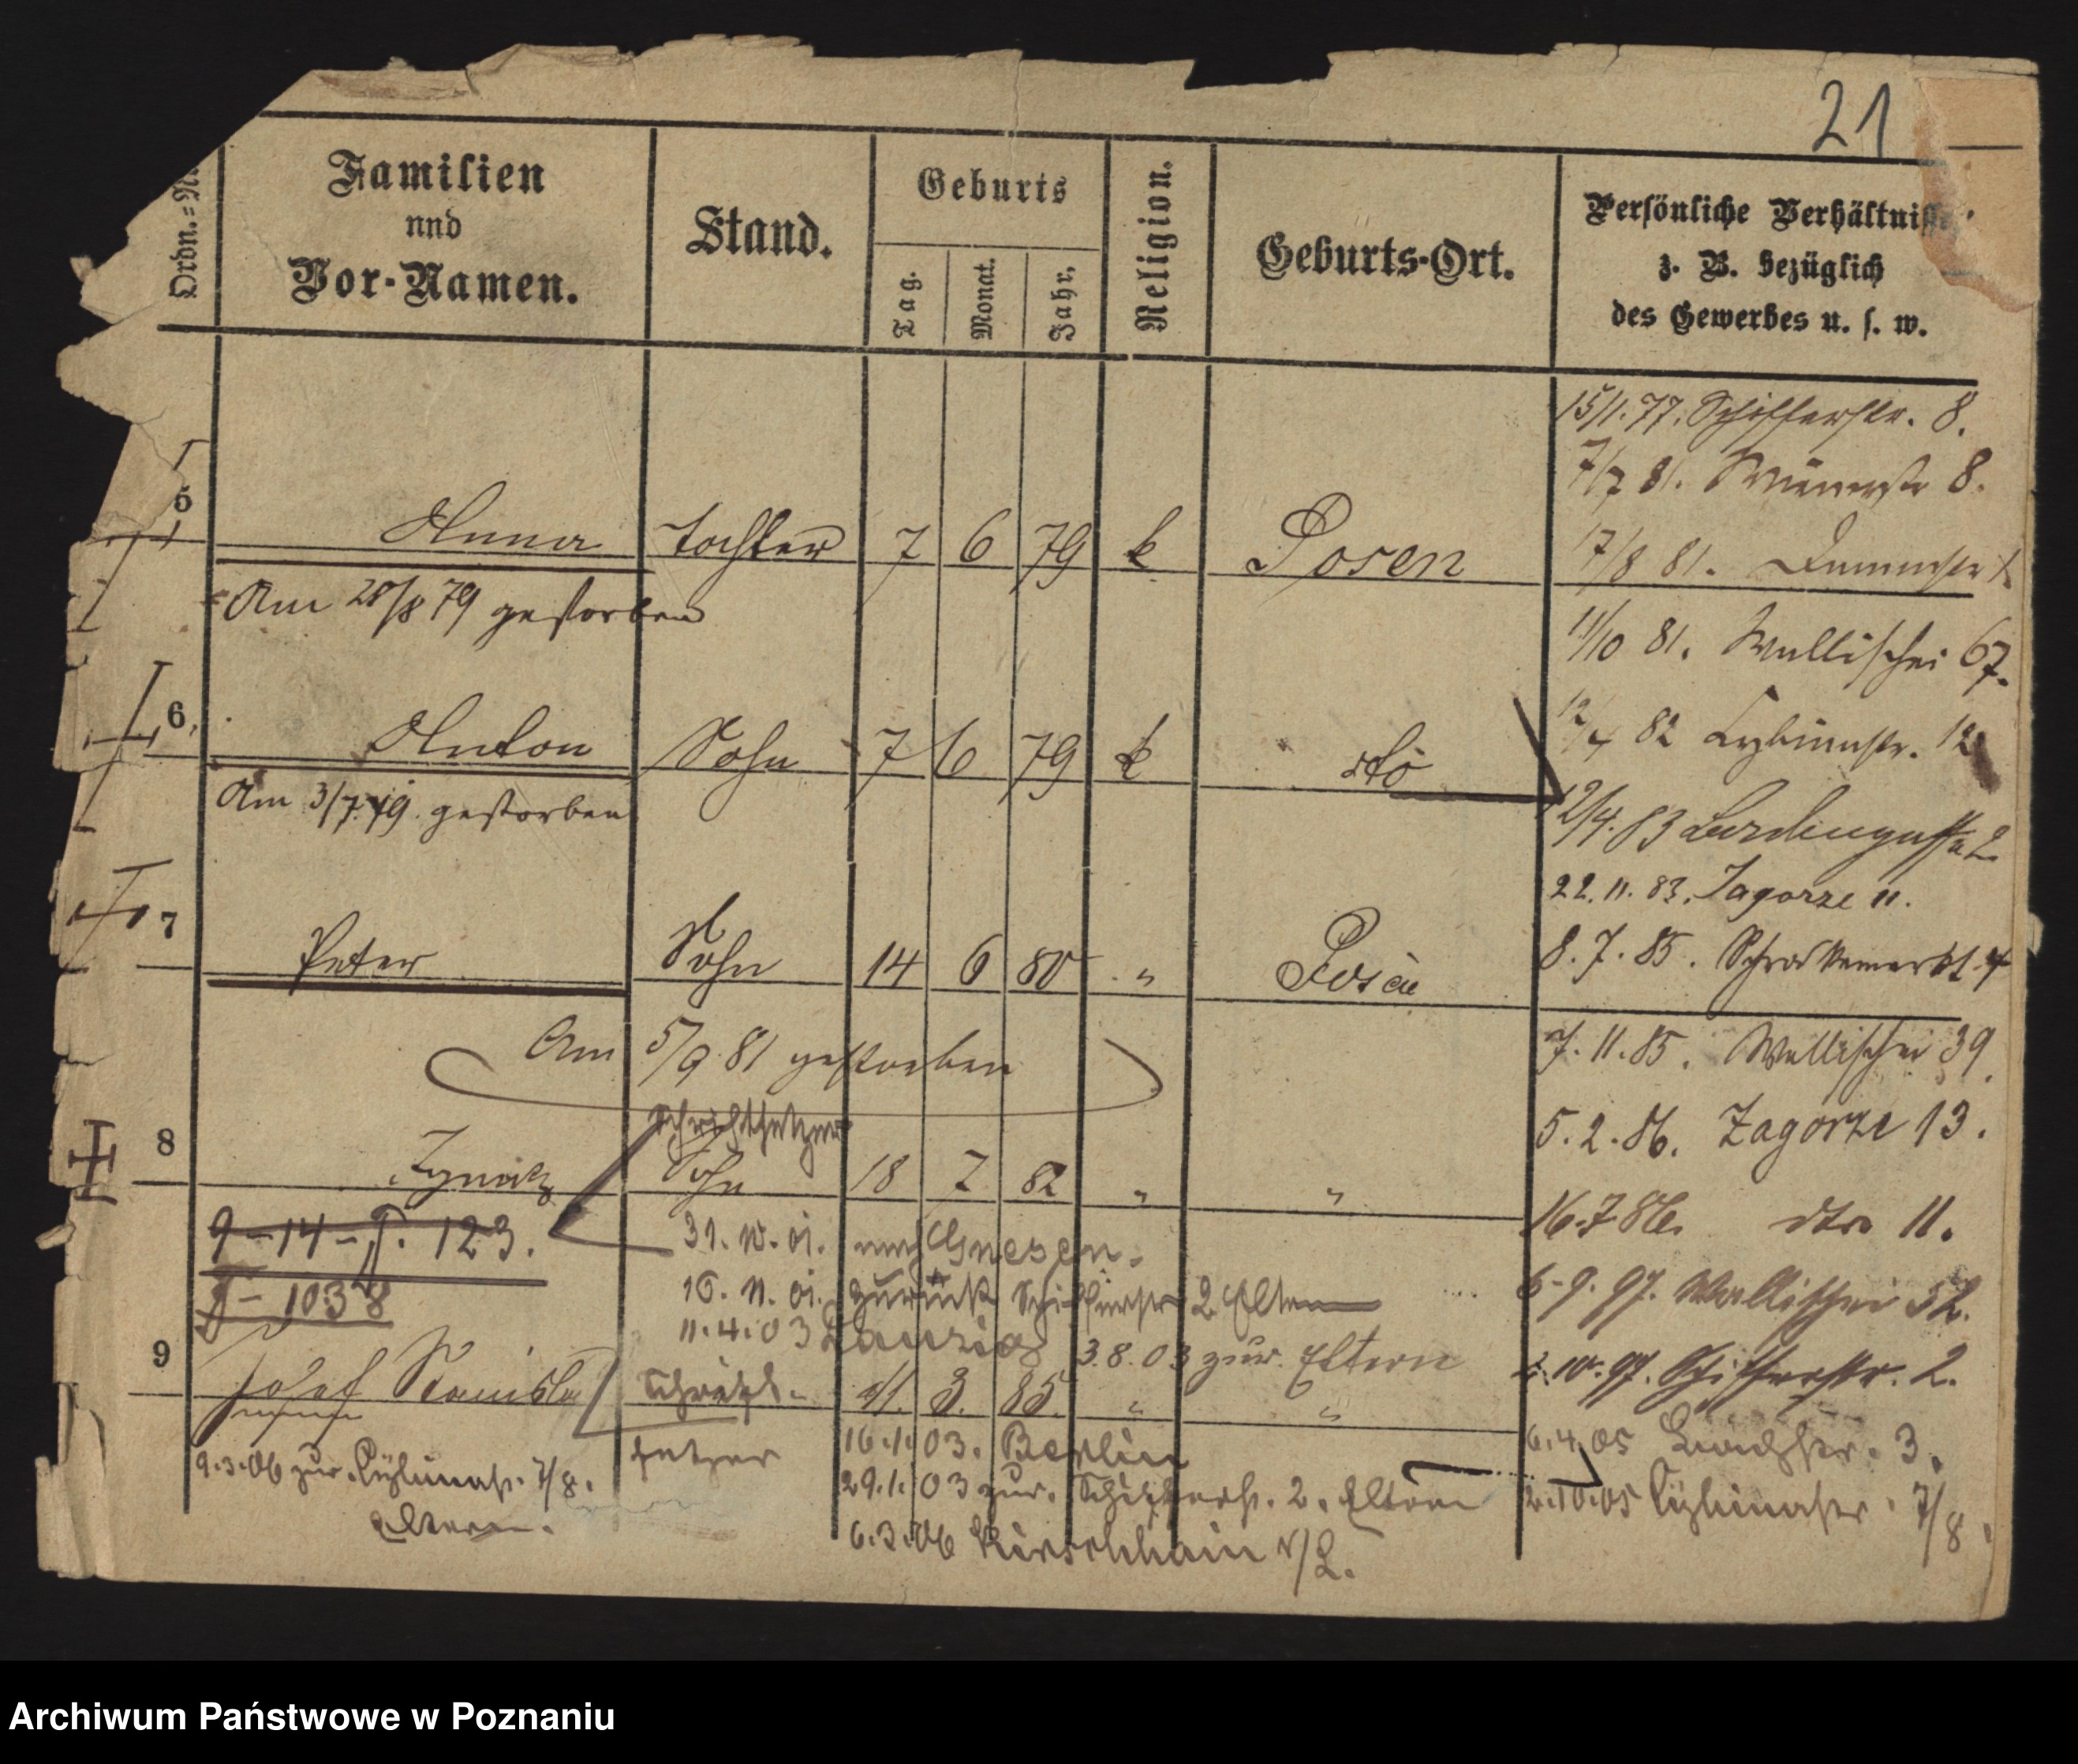 21
Ordn.=N
Familien
und
Vor-Namen.
Stand.
Geburts
Tag.
Monat.
Jahr.
Religion.
Geburts-Ort.
Persönliche Verhältnisse
z. B. bezüglich
des Gewerbes u. s. w.
15/1. 77. Schifferstr. 8.
7/7 81. 8.
5
Anna Tochter 7 6 79 k Posen
17/8 81. Dammstr
Am 28/8 79 gestorben
11/10 81. Wallischei 67.
6.
Anton Sohn 7 6 79 k dto
82 Cybinastr. 12
Am 3/7. 79. gestorben
12/4. 83 2
22. 11. 83. Zagorze 11.
7
Peter Sohn 14 6 80 " Posen
8. 7. 85. Schrodkamarkt 4
Am 5/9 81 gestorben
7. 11. 85. Wallischei 39.
5. 2. 86. Zagorze 13.
8
Schriftsetzer
Ignatz Sohn 18 7 82 " "
16. 7 86. dto 11.
9-14-P. 123.
31. 10. 01. nach Gnesen.
P- 1038
16. 11. 01. zurück Schifferstr 2 Eltern
6. 9. 97. Wallischei 52.
11. 4. 03 Danzig 3. 8. 03 zur. Eltern
10. 97. Schifferstr. 2.
9
Josef Stanisl Schrifts- 3. 85. " "
setzer
16. 1. 03. Berlin
6. 4. 05 3.
9. 3. 06 zur. Cybinastr. 7/8.
Eltern.
29. 1. 03 zur. Schifferstr. 2. Eltern
2. 10. 05 Cybinastr. 7/8.
6. 3. 06 Kirschhain N/L.
Archiwum Państwowe w Poznaniu